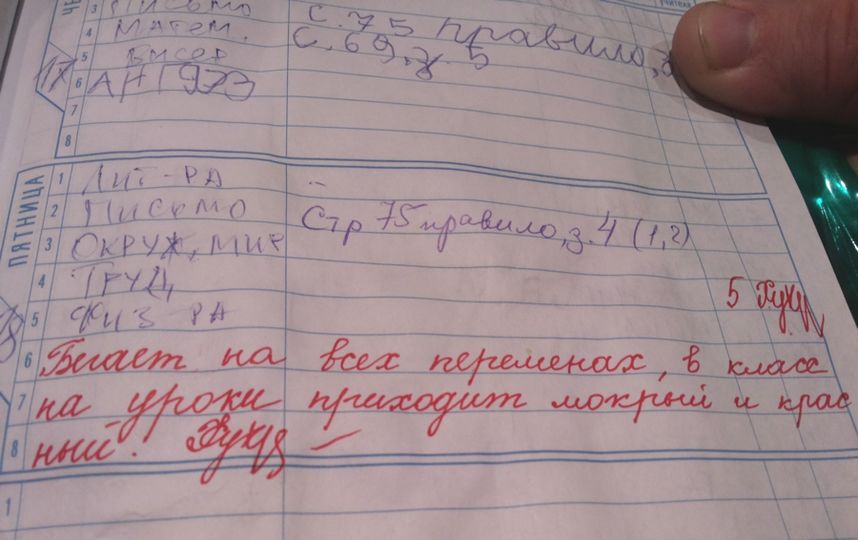 3 Письмо с. 75 правило, з
4 Матем. с. 69, з. 5
5
6
7
8
ПЯТНИЦА
1 Лит-РА
2 Письмо Стр 75 правило, з. 4 (1,2)
3 ОКРУЖ. МИР
4 ТРУД
5 Физ-РА 5
6 Бегает на всех переменах, в класс
7 на уроки приходит мокрый и крас
8 ный.
1